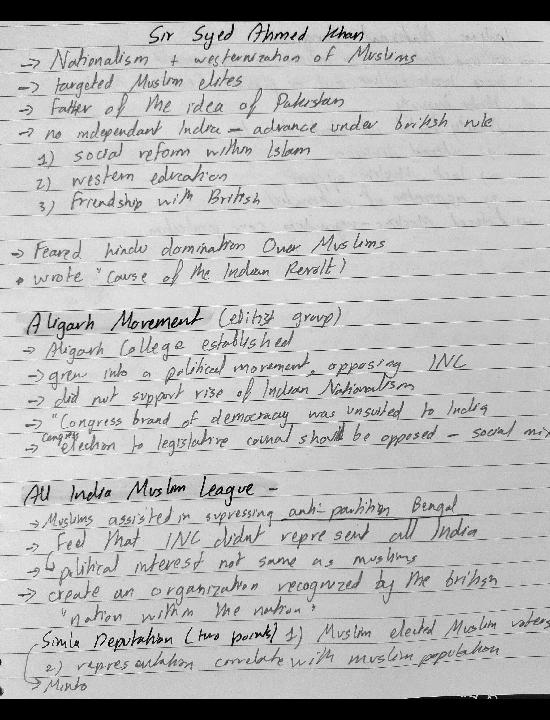 Sir Syed Ahmed Khan
→ Nationalism + westernization of Muslims
→ targeted Muslim elites
→ Father of the idea of Pakistan
→ no independant India – advance under british rule
1) social reform within Islam
2) western education
3) Friendship with British
→ Feared hindu domination Over Muslims
• wrote "Cause of the Indian Revolt)
Aligarh Movement (elitist group)
→ Aligarh College established
→ grew into a political movement, opposing INC
→ did not support rise of Indian Nationalism
→ "Congress brand of democracy was unsuited to India
→ congress election to legislative council should be opposed – social mix
All India Muslim League –
→ Muslims assisted in supressing anti-partition Bengal
→ feel that INC didnt represent all India
→ political interest not same as muslims
→ create an organization recognized by the british
"nation within the nation"
Simla Deputation (two points) 1) Muslim elected Muslim voters
2) representation correlate with muslim population
→ Minto